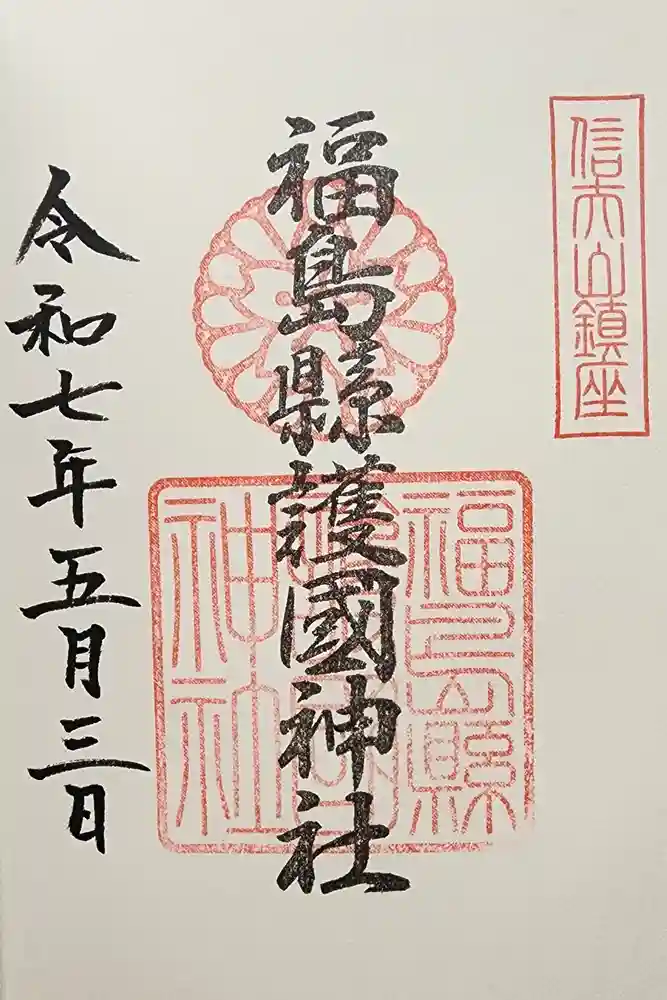 信夫山鎮座
福島縣護國神社
福島縣
神社
令和七年五月三日